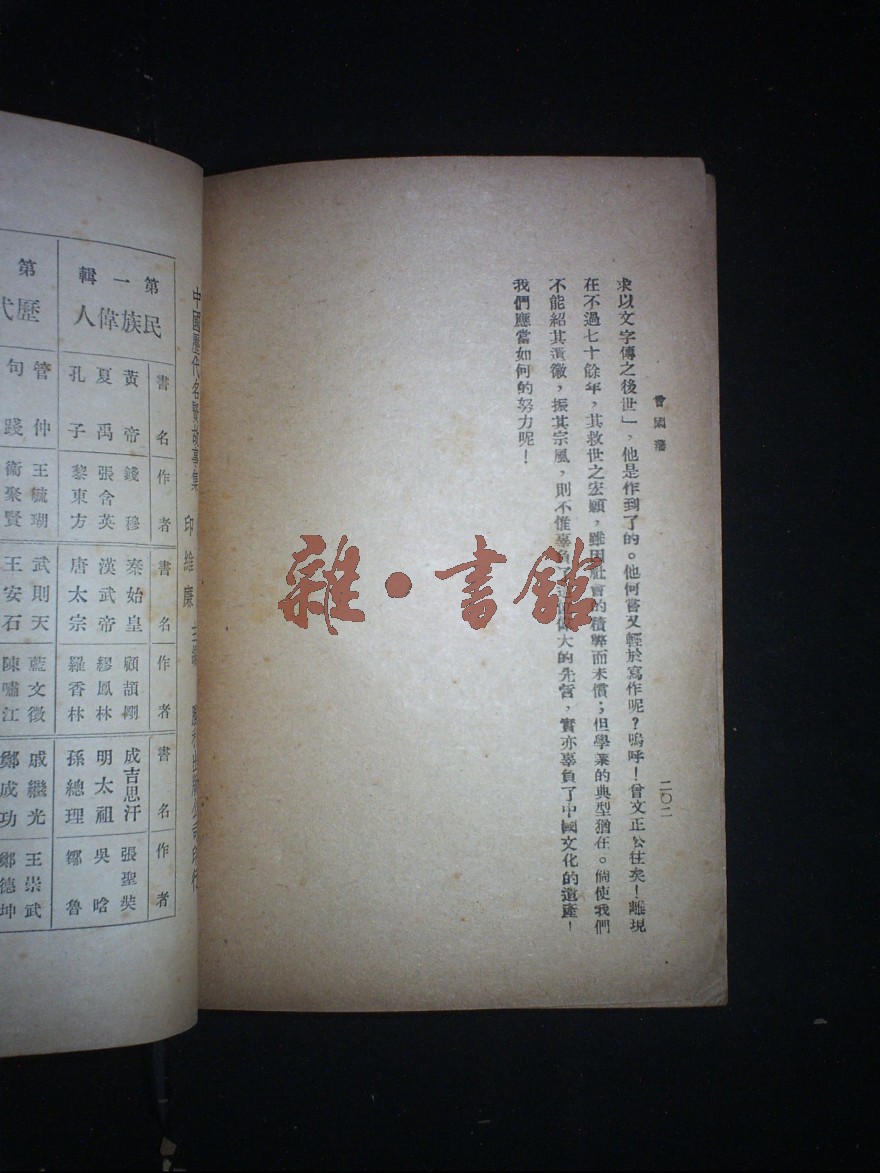 曾國藩
二〇二
求以文字傳之後世」，他是作到了的。他何嘗又輕於寫作呢？嗚呼！曾文正公往矣！離現
在不過七十餘年，其救世之宏願，雖因社會的積弊而未償；但學業的典型猶在。倘使我們
不能紹其潢徽，振其宗風，則不惟辜負了大的先哲，實亦辜負了中國文化的遺產！
我們應當如何的努力呢！
雜·書館
中國歷代名賢故事集 印維廉 主編 勝利出版公司印行
第一輯
民族偉人
書名 作者 書名 作者 書名 作者
黃帝 錢穆 秦始皇 顧頡剛 成吉思汗 張聖奘
夏禹 張含英 漢武帝 繆鳳林 明太祖 吳晗
孔子 黎東方 唐太宗 羅香林 孫總理 鄒魯
第
歷代
管仲 王毓瑚 武則天 藍文徵 戚繼光 王崇武
句踐 衛聚賢 王安石 陳嘯江 鄭成功 鄭德坤